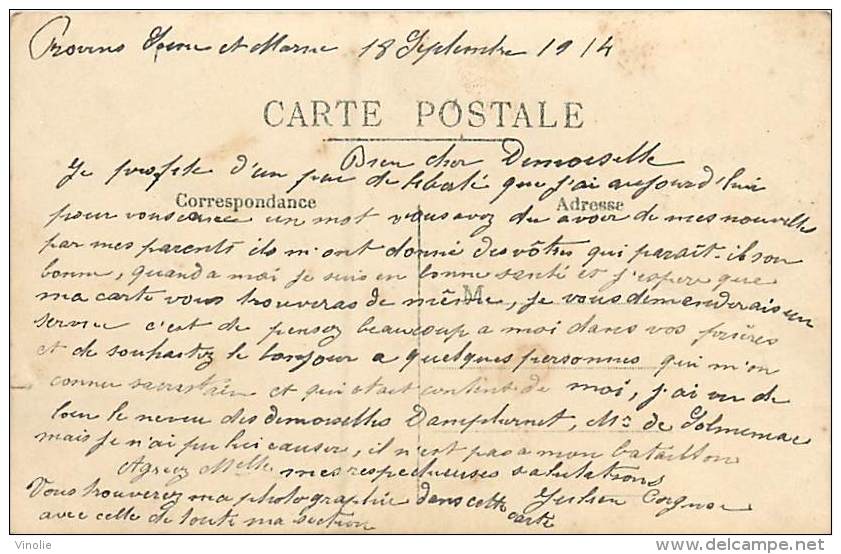 Provins Seine et Marne 18 Septembre 1914
CARTE POSTALE
Bien cher Demoiselle
Je profite d'un peu de liberté que j'ai aujourd'hui
Correspondance
Adresse
pour vous un mot vous avez du avoir de mes nouvelles
par mes parents ils m'ont donné des vôtres qui parait-il son
bonne, quand a moi je suis en bonne santé et j'espere que
M
ma carte vous trouveras de même, je vous demanderais un
service c'est de pensez beaucoup a moi dans vos prières
et de souhaitez le bonjour a quelques personnes qui m'on
connu sacristain et qui etait content de moi, j'ai vu de
loin le neveu des demoiselles Mr de
mais je n'ai pu lui causer, il n'est pas a mon bataillon
Agréez Melle mes respectueuses salutations
Vous trouverez ma photographie dans cette Julien
avec celle de toute ma section carte
Vinolie
www.delcampe.net